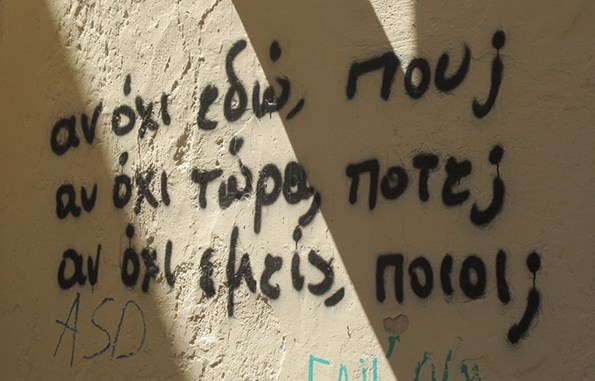 αν όχι εδώ, που;
αν όχι τώρα, ποτε;
αν όχι εμείς, ποιοι;
ASD